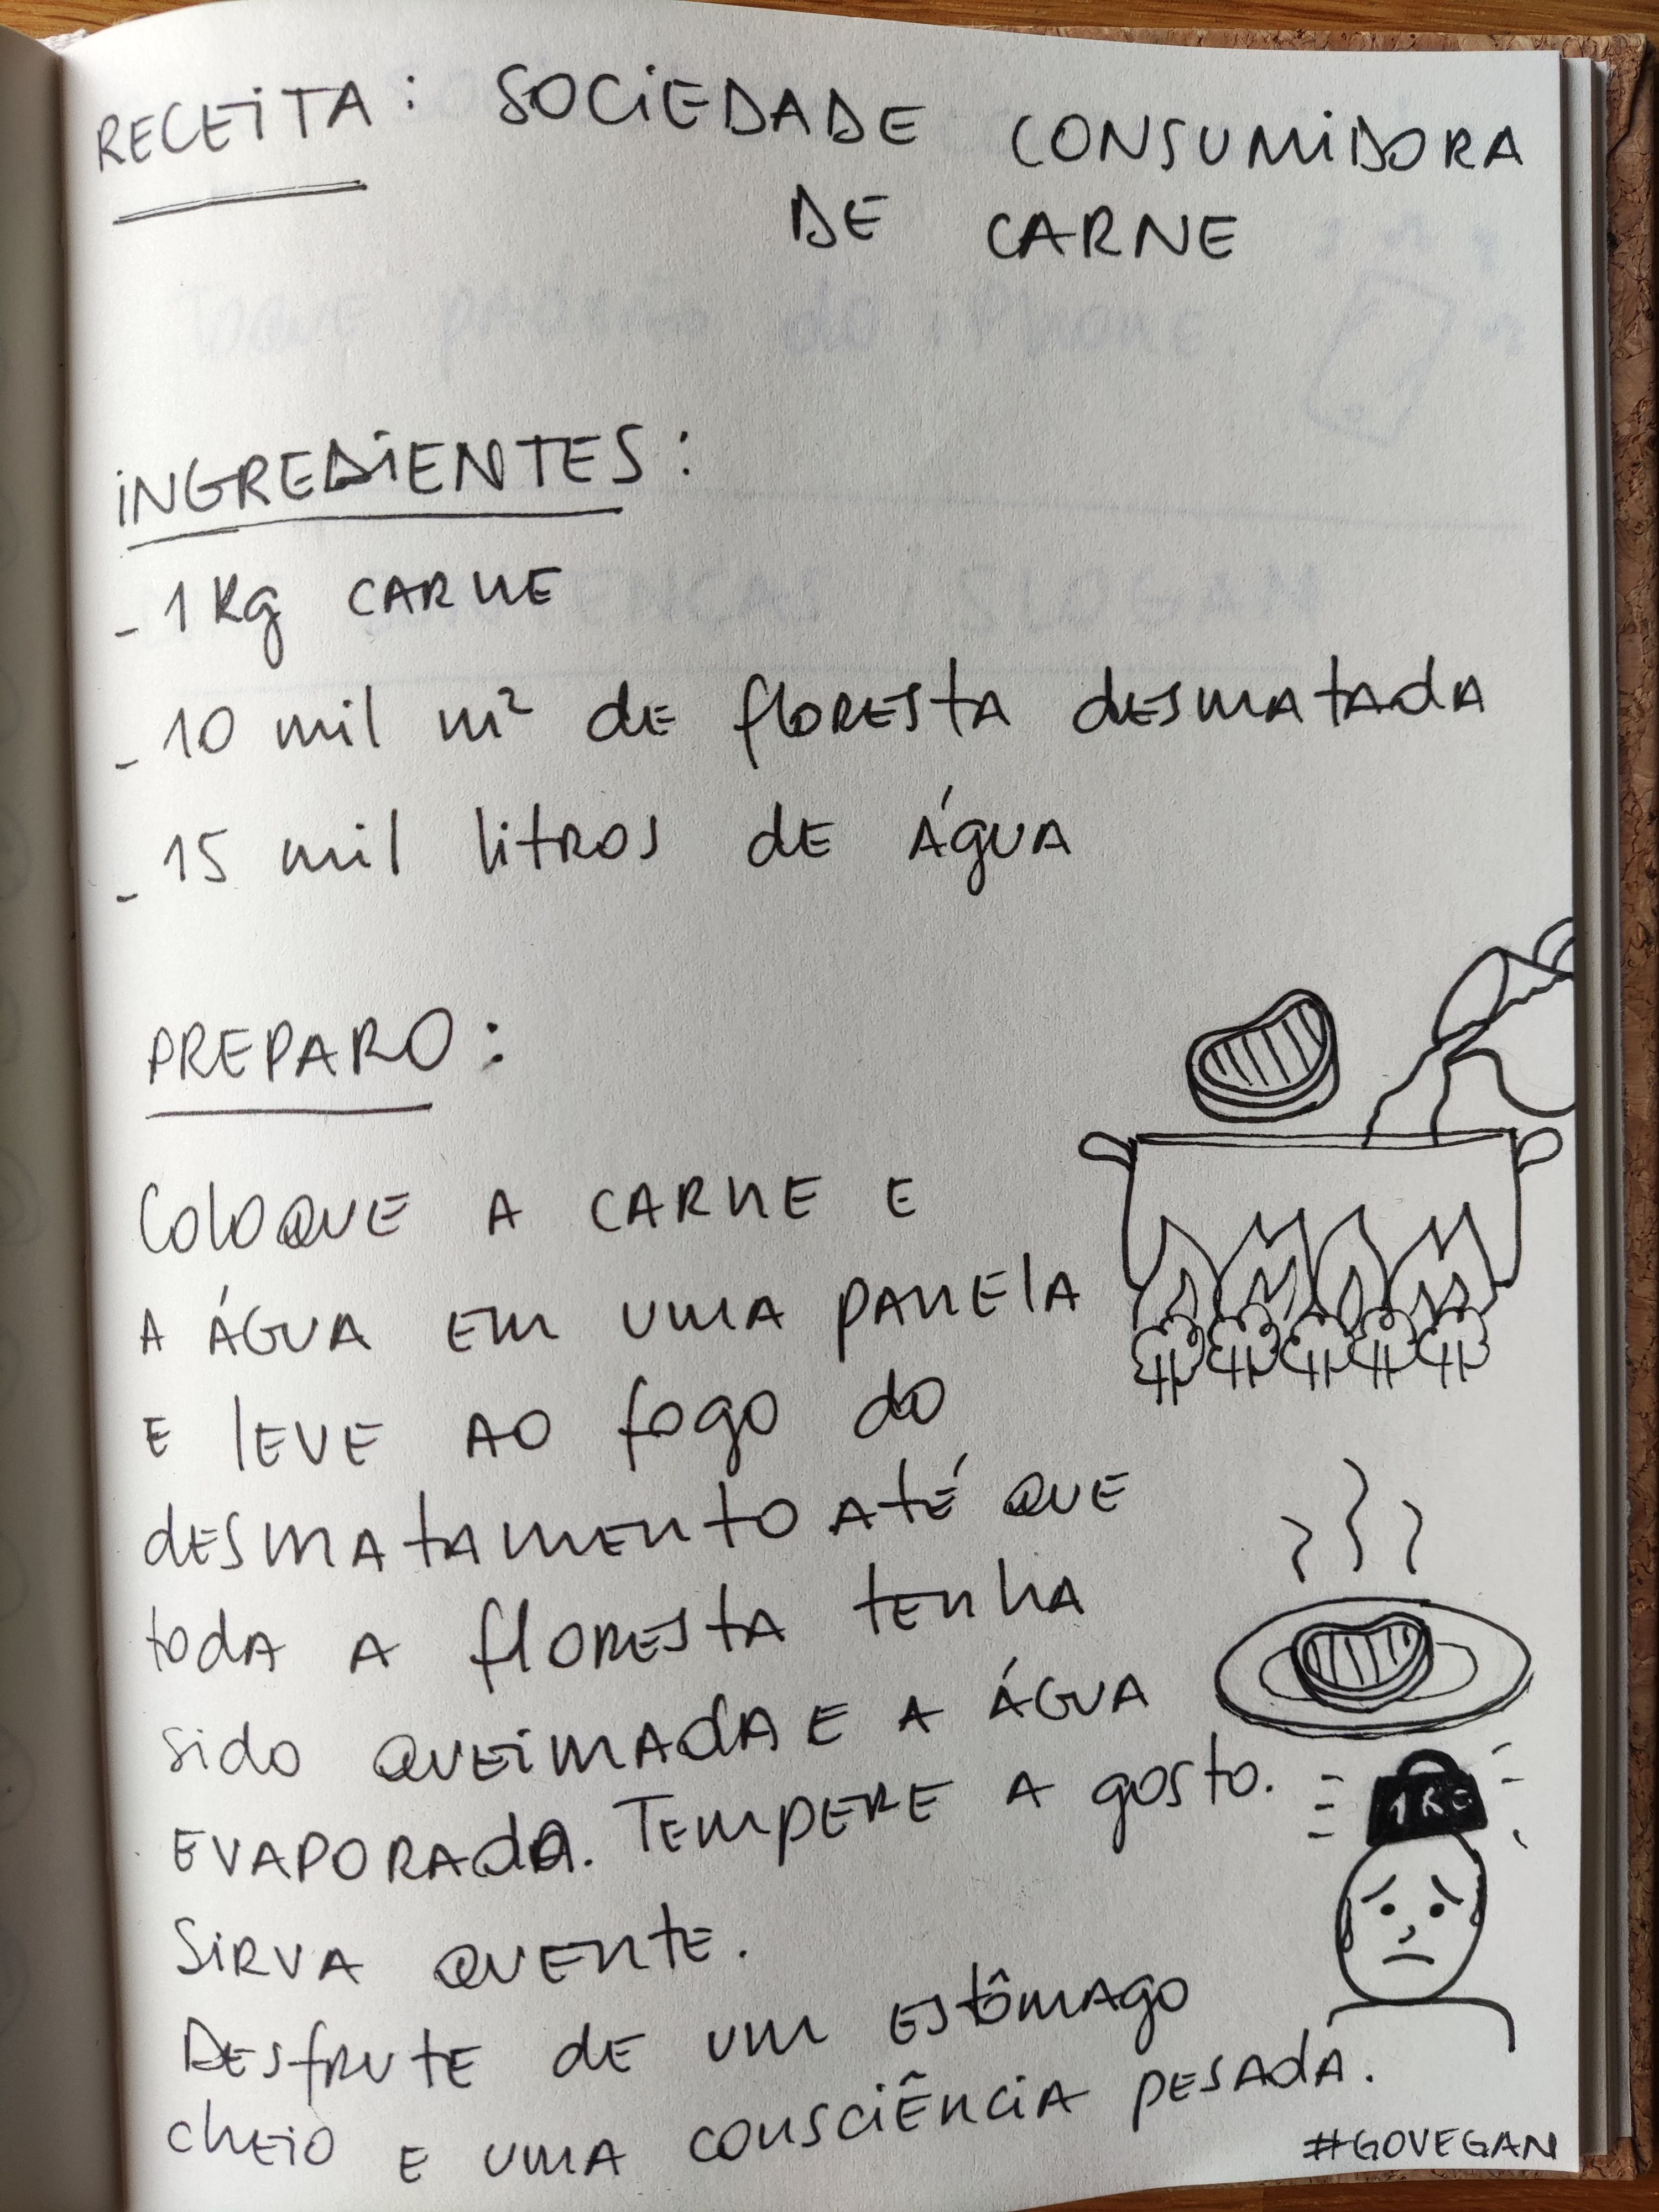 RECEITA: SOCIEDADE CONSUMIDORA
DE CARNE
Toque padrão do iPhone.
INGREDIENTES:
- 1 Kg CARNE
SLOGAN
- 10 mil m² de floresta desmatada
- 15 mil litros de água
PREPARO:
Coloque a carne e
a água em uma panela
e leve ao fogo do
desmatamento até que
toda a floresta tenha
sido queimada e a água
evaporada. Tempere a gosto.
1 KG
Sirva quente.
Desfrute de um estômago
cheio e uma consciência pesada.
#GOVEGAN